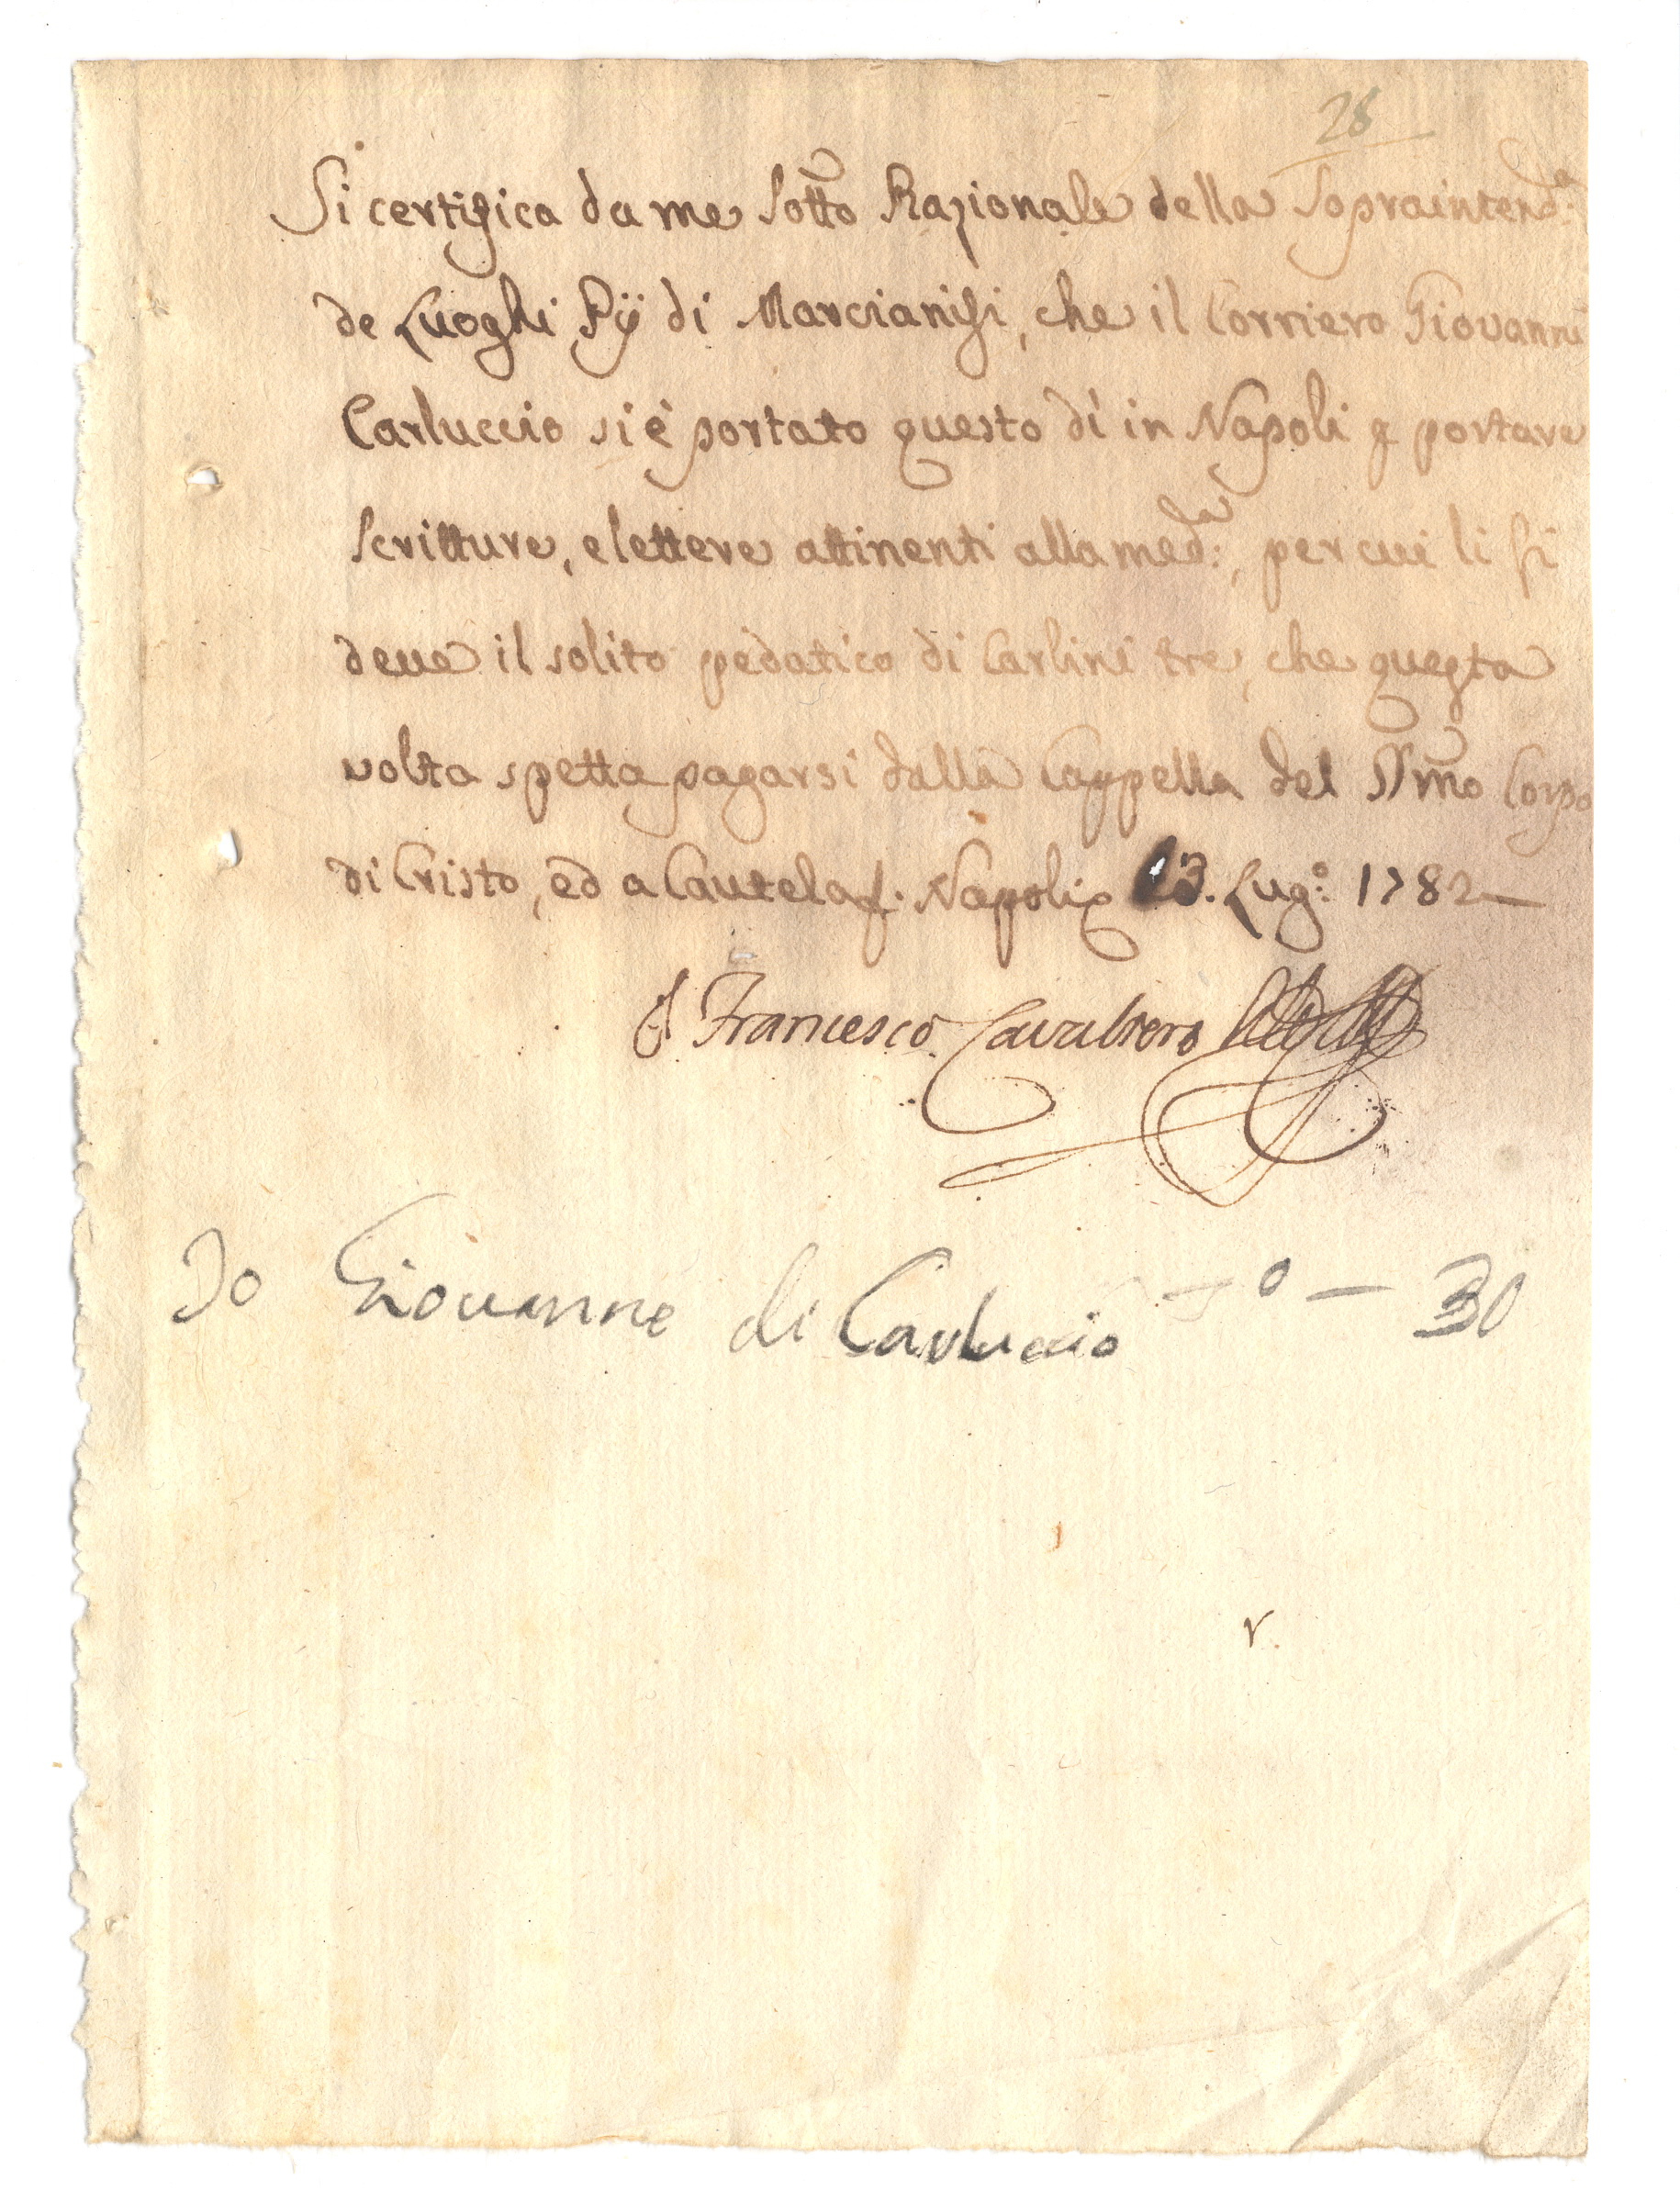 28
Si certifica da me sotto Razionale della Sopraintend:a
de Luoghi Pij di Marcianisi, che il Corriero Giovanni
Carluccio si è portato questo dì in Napoli p portare
scritture, e lettere attinenti alla med:a, per cui li si
deve il solito pedatico di Carlini tre, che questa
volta spetta pagarsi dalla Cappella del SSmo Corpo
di Cristo, ed a Cautela Napoli 13. Lug:o 1782
Francesco Cavaltero
Io Giovanne di Carluccio — 0 — 30